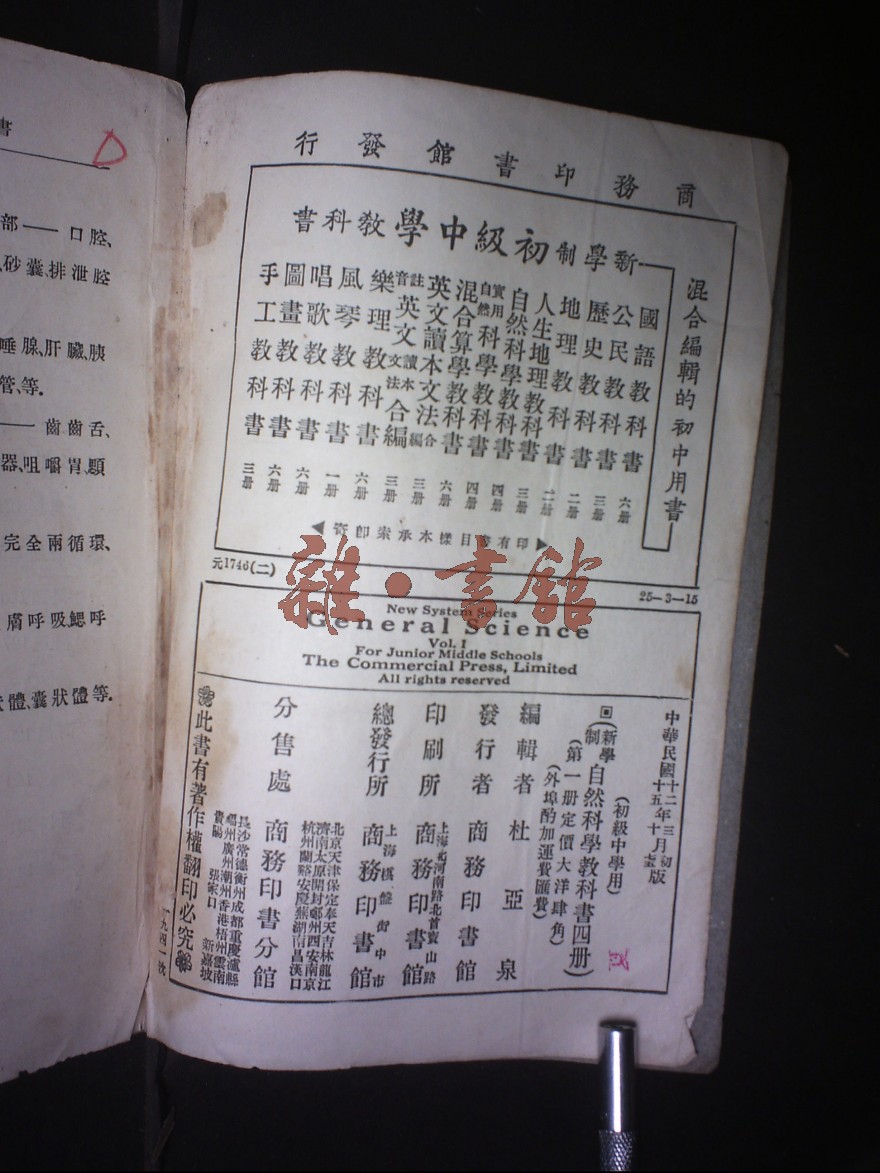 商務印書館發行
混合編輯的初中用書
新學制初級中學教科書
國語教科書 六册
公民教科書 三册
歷史教科書 二册
地理教科書 二册
人生地理教科書 三册
自然科學教科書 四册
實用自然科學教科書 四册
混合算學教科書 六册
英文讀本文法合編 三册
註音英文讀本文法合編 三册
樂理教科書 六册
風琴教科書 一册
唱歌教科書 六册
圖畫教科書 六册
手工教科書 三册
印有書目樣本承索即寄
元1746(二)
25—3—15
雜·書館
New System Series
General Science
Vol. I
For Junior Middle Schools
The Commercial Press, Limited
All rights reserved
中華民國十二年三月初版
十五年十月
(初級中學用)
(新學制)自然科學教科書四册)
(第一册定價大洋肆角)
(外埠酌加運費匯費)
編輯者 杜亞泉
發行者 商務印書館
上海北河南路北首寶山路
印刷所 商務印書館
上海棋盤街中市
總發行所 商務印書館
北京天津保定奉天吉林龍江
濟南太原開封鄭州西安南京
杭州蘭谿安慶蕪湖南昌漢口
分售處 商務印書分館
長沙常德衡州成都重慶瀘縣
福州廣州潮州香港梧州雲南
貴陽 張家口 新嘉坡
此書有著作權翻印必究
一九四一
書
部——口腔、
砂囊、排泄腔
唾腺、肝臟、胰
管、等.
——齒齒舌、
器、咀嚼胃、顋
完全兩循環、
膚呼吸鰓呼
體、囊狀體等.